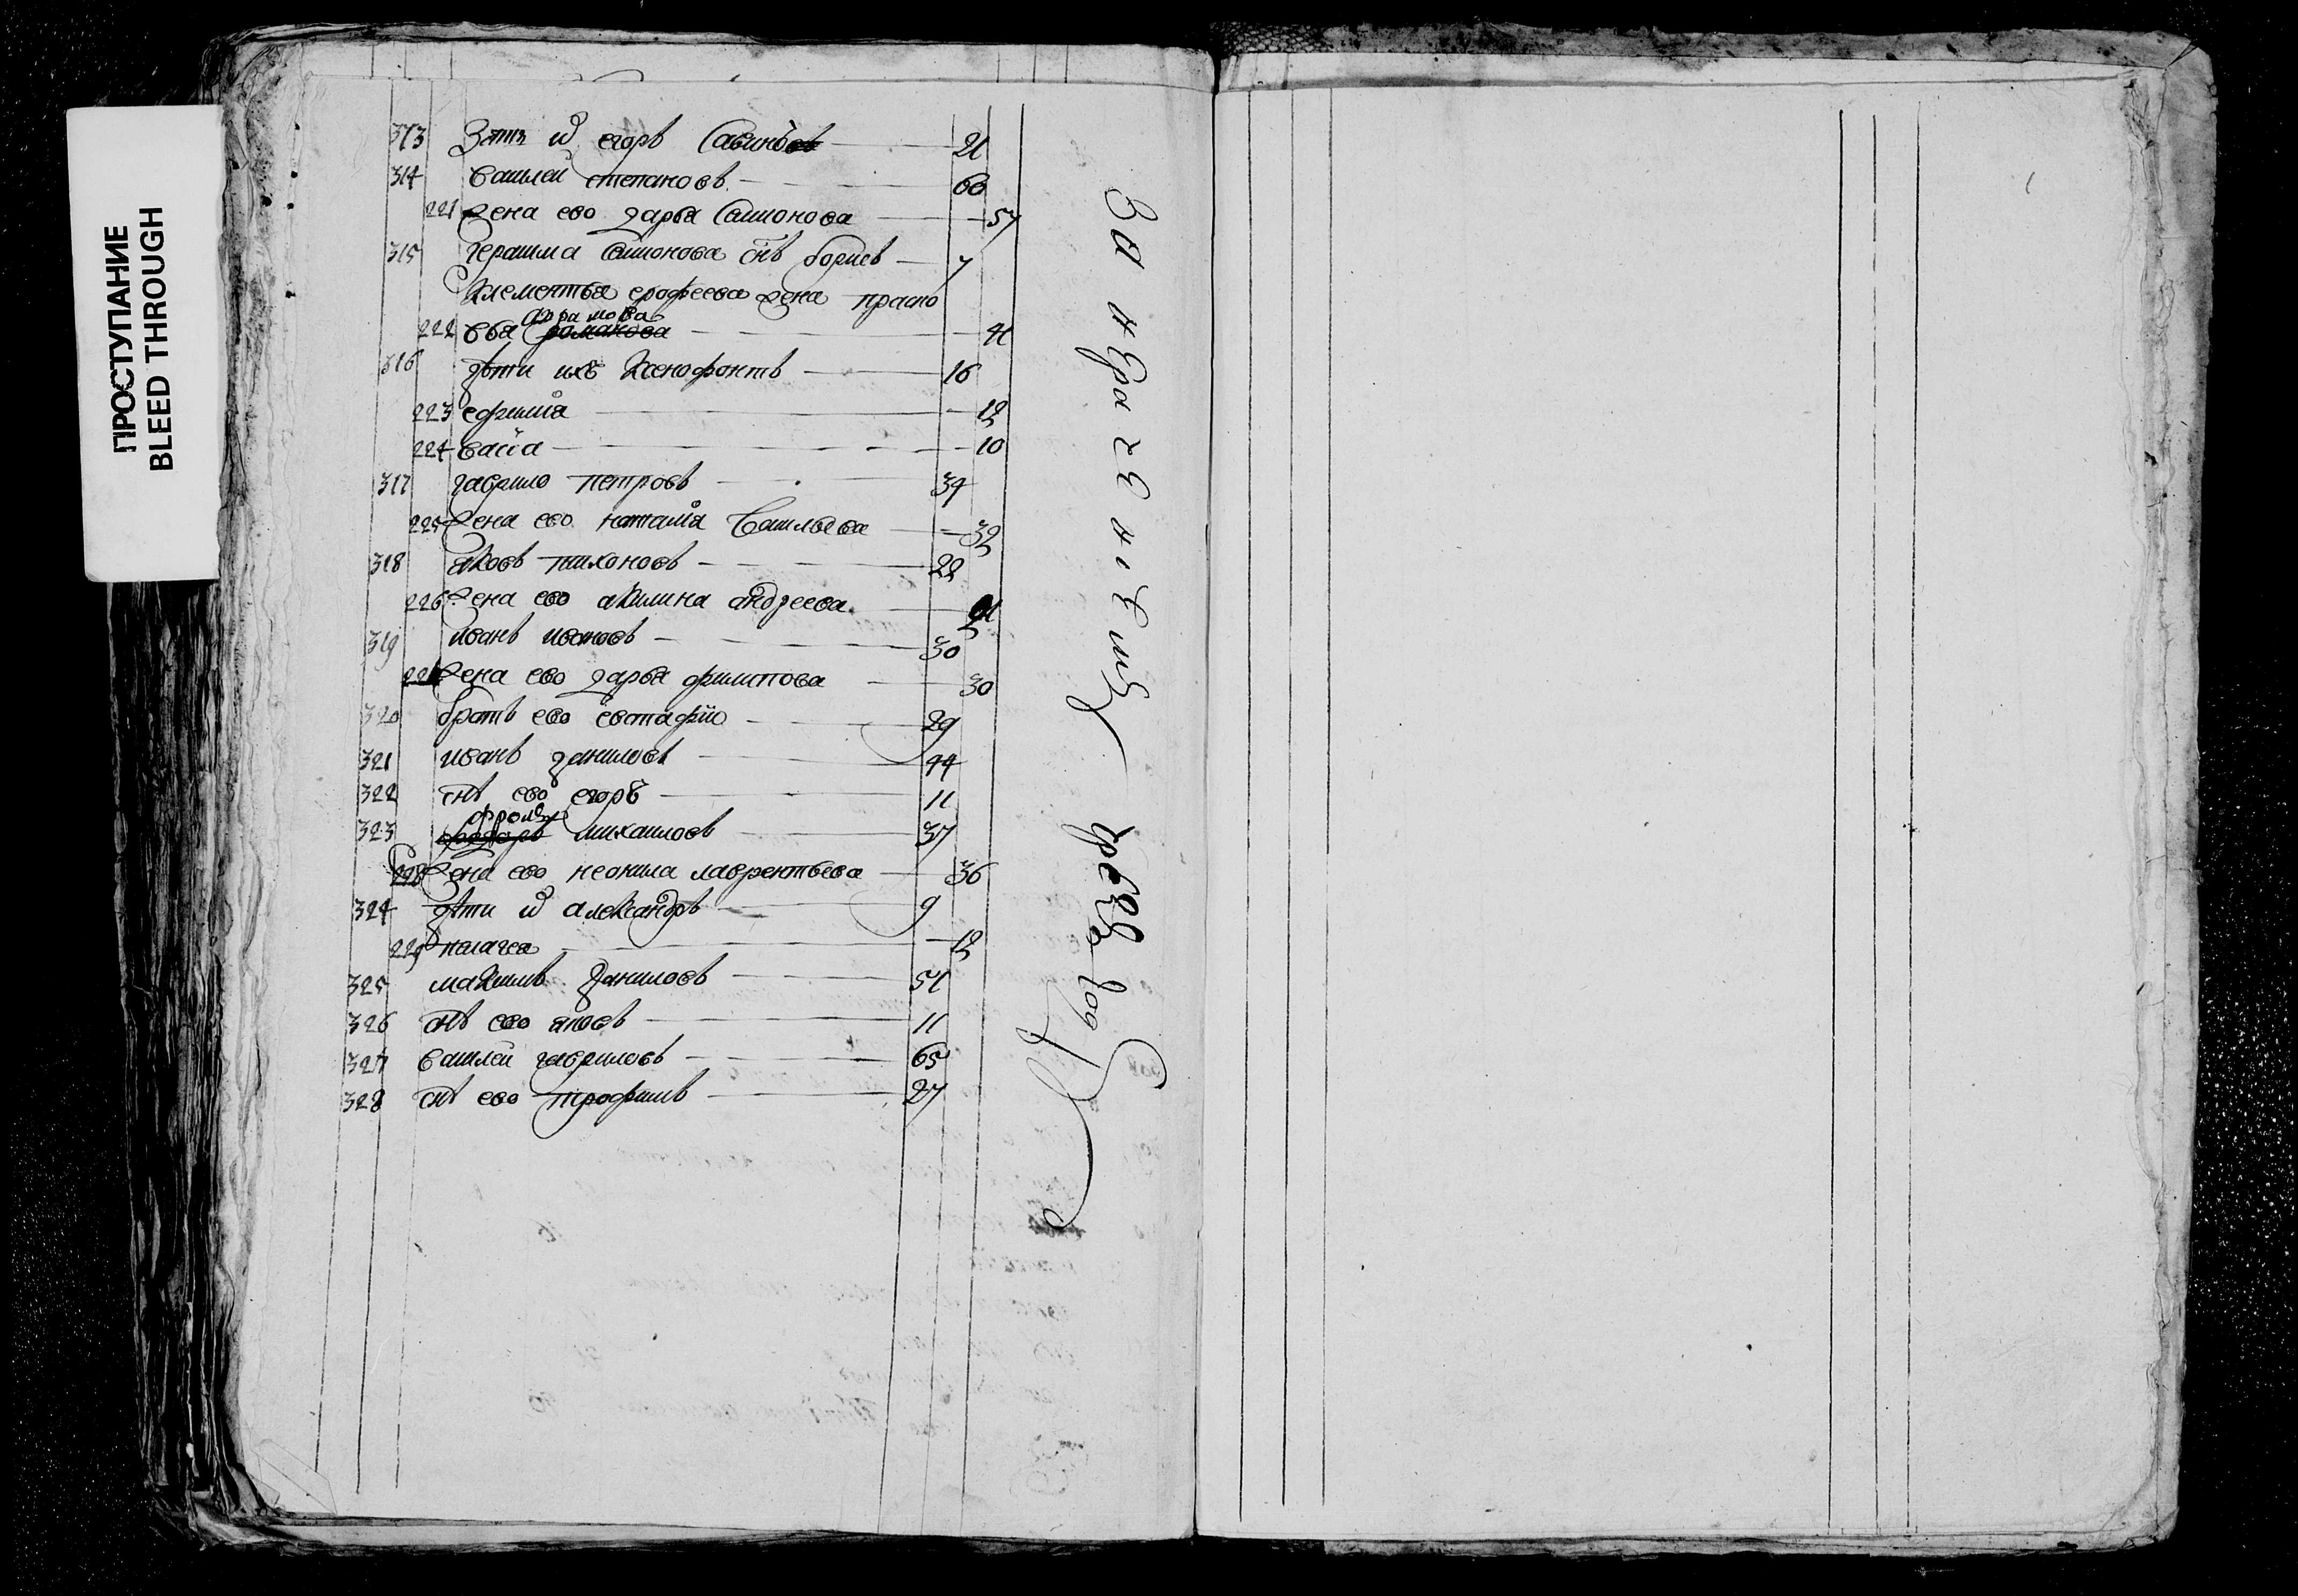 ПРОСТУПАНИЕ
BLEED THROUGH
313 Зять егоръ Савинов 21
314 василей степановъ 60
221 жена ево дарья Симонова 57
315 герасима Симонова снъ борисъ 7
Клементья ерофеева жена праско
222 вья романова 41
316 дѣти ихъ Ксенофонтъ 16
223 ефимия 12
224 васса 10
317 гаврило петровъ 34
225 жена ево наталя Васильева 32
318 яковъ тихоновъ 22
226 жена ево акилина андреева 21
319 иванъ ивановъ 30
227 жена ево дарья филипова 30
320 братъ ево евстафий 29
321 иванъ даниловъ 44
322 снъ ево егоръ 11
фролъ
323 михаиловъ 37
228 жена ево неонила лаврентьева 36
324 дѣти александръ 9
229 пелагея 12
325 максимъ даниловъ 51
326 снъ ево яковъ 11
327 василей гавриловъ 65
328 снъ ево трофимъ 27